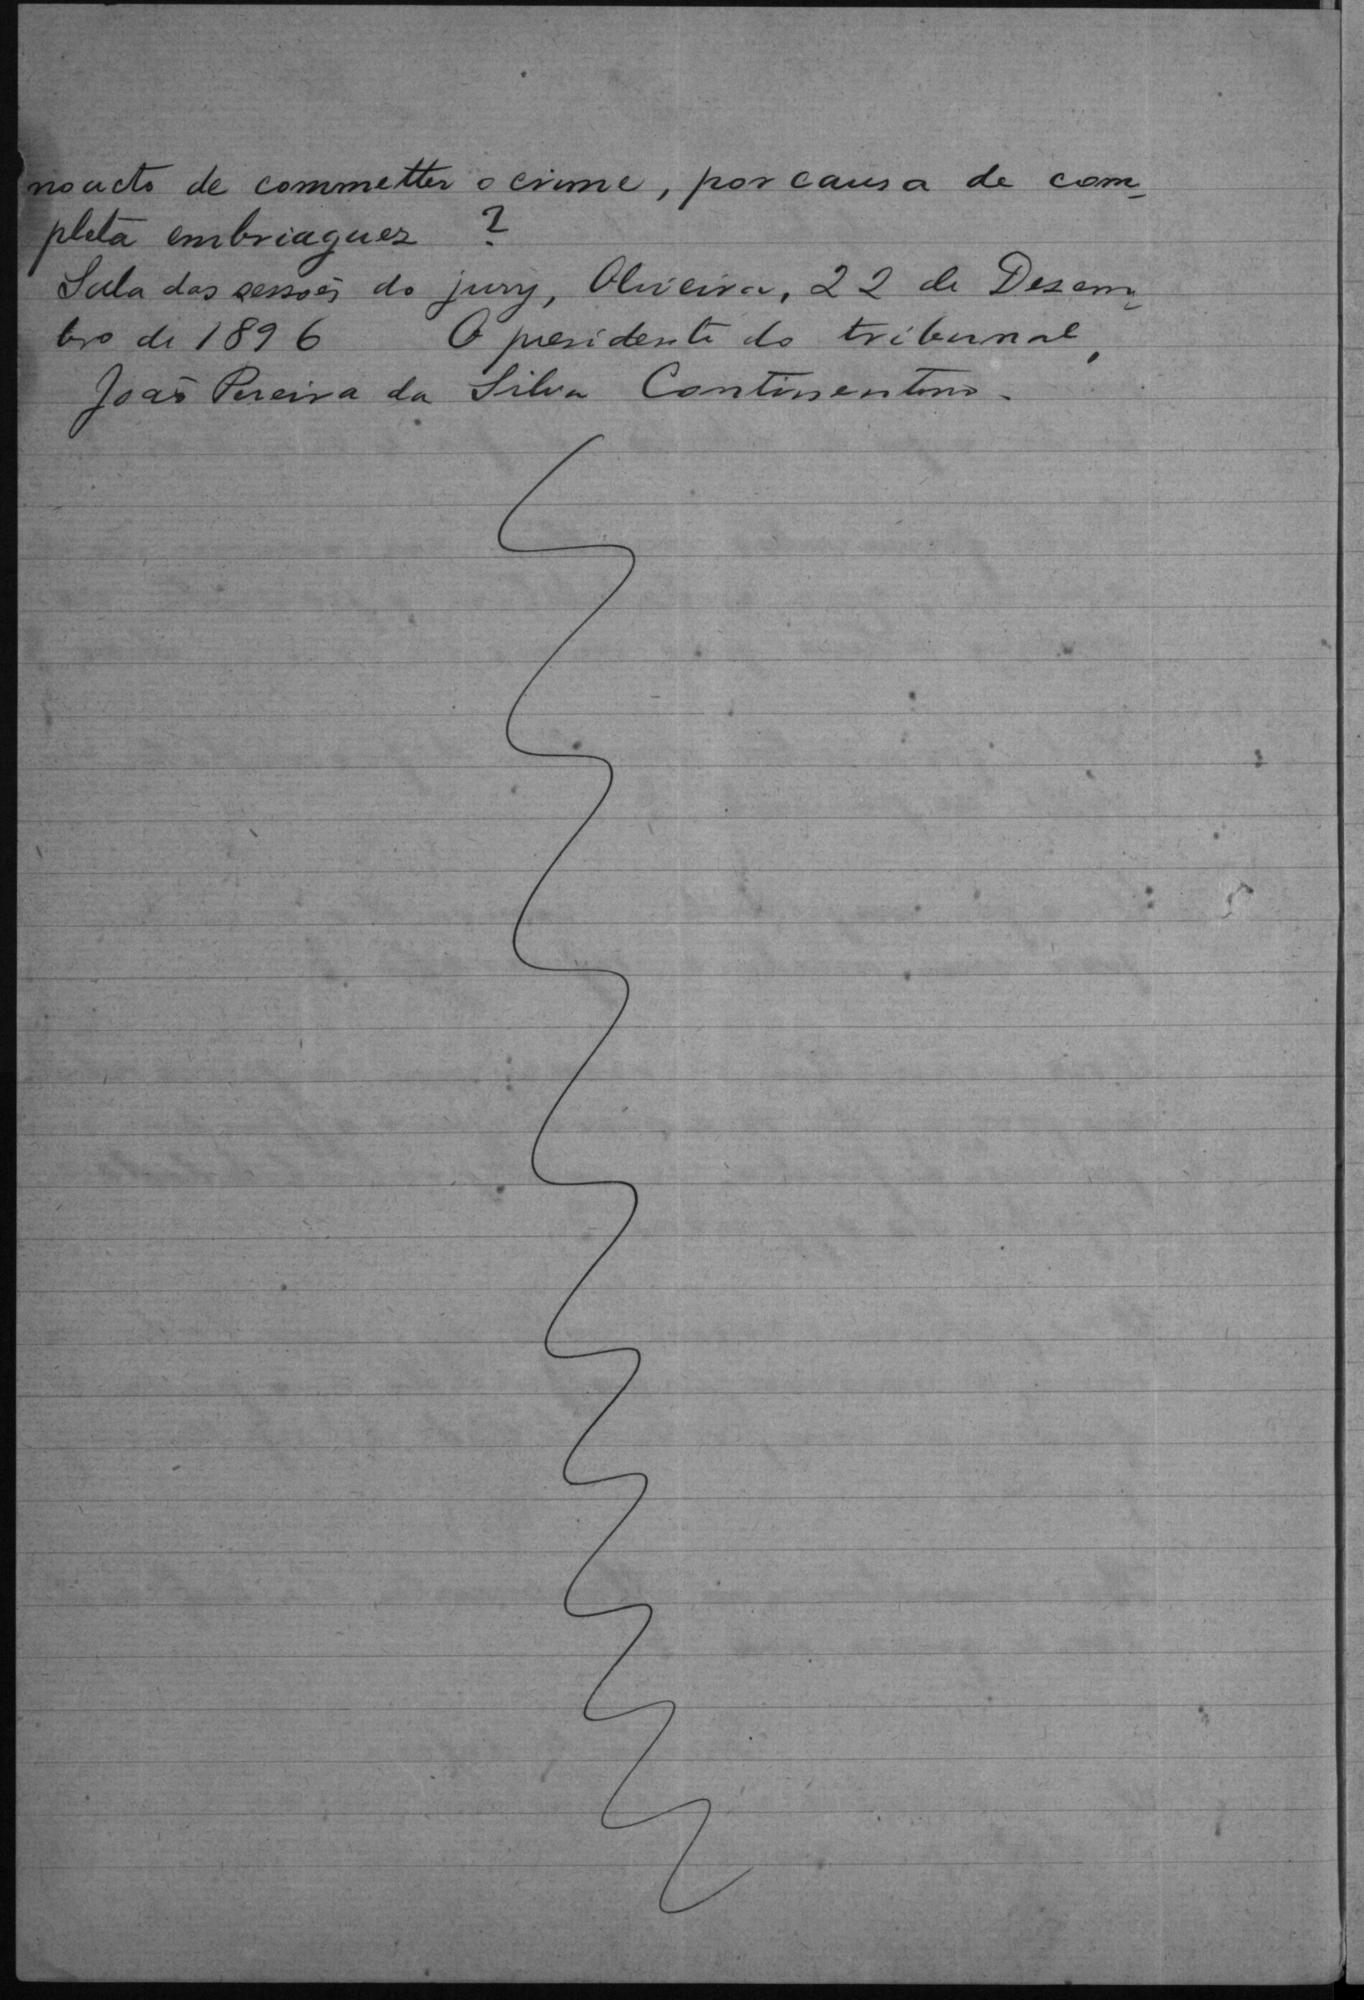 no acto de commetter o crime, por causa de com-
pleta embriaguez ?
Sala das sessões do jury, Oliveira, 22 de Dezem-
bro de 1896 O presidente do tribunal,
João Pereira da Silva Continentino.